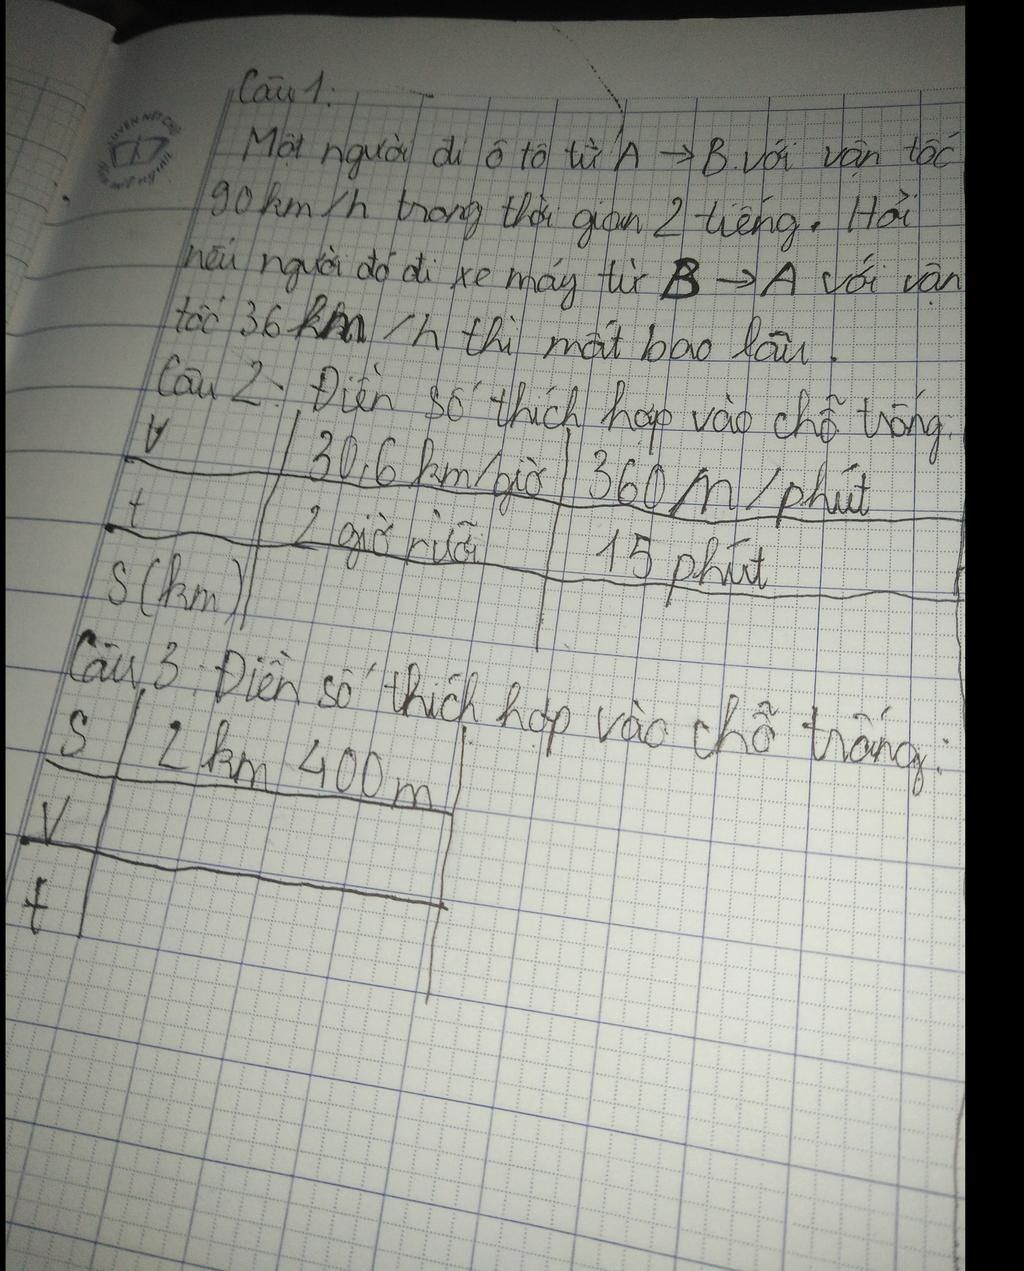 Câu 1:
Một người đi ô tô từ A → B với vận tốc
90 km/h trong thời gian 2 tiếng. Hỏi
nếu người đó đi xe máy từ B → A với vận
tốc 36 km/h thì mất bao lâu.
Câu 2: Điền số thích hợp vào chỗ trống:
V 30,6 km/giờ 360 m/phút
t 2 giờ rưỡi 15 phút
S (km)
Câu 3: Điền số thích hợp vào chỗ trống:
S 2 km 400 m
V
t